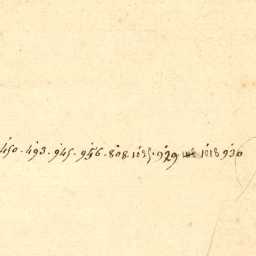 450 . 493 . 945 . 956 . 808 . 1035 . 929 1018 930